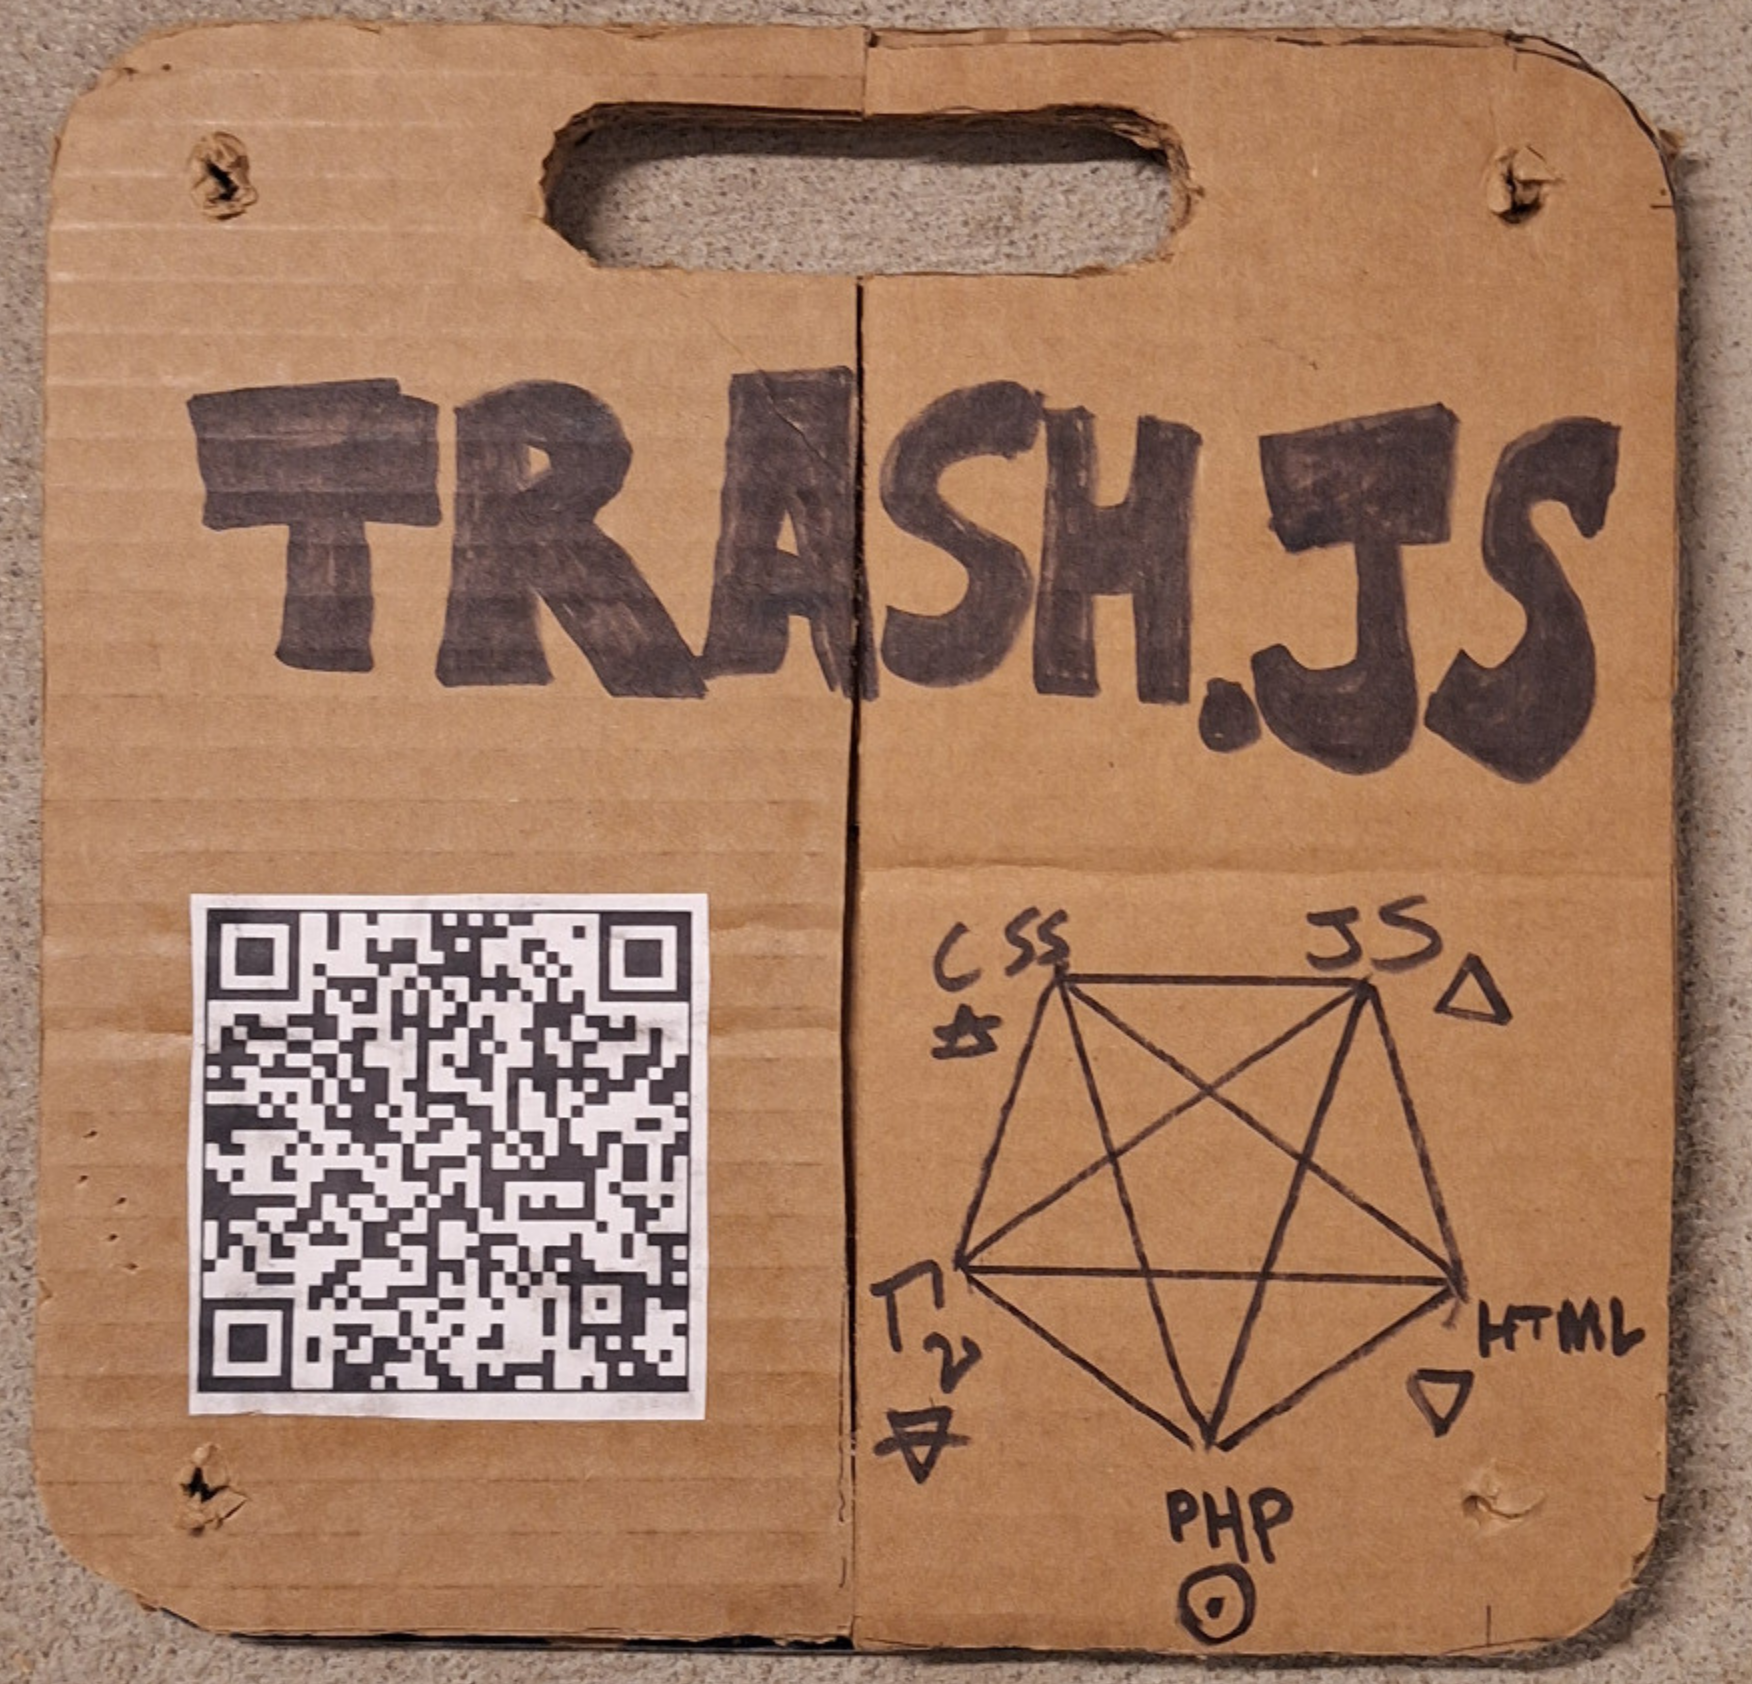 TRASH.JS
CSS JS
HTML
PHP